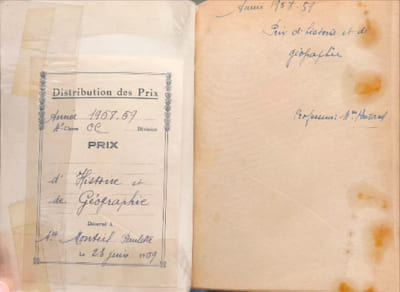 Distribution des Prix
Année 1958.59
Classe CC Division
PRIX
d'Histoire et
de Géographie
Décerné à
Monteil Paulette
le 28 juin 1959
Année 1958.59
Prix d'histoire et de
géographie
Professeur: Mme